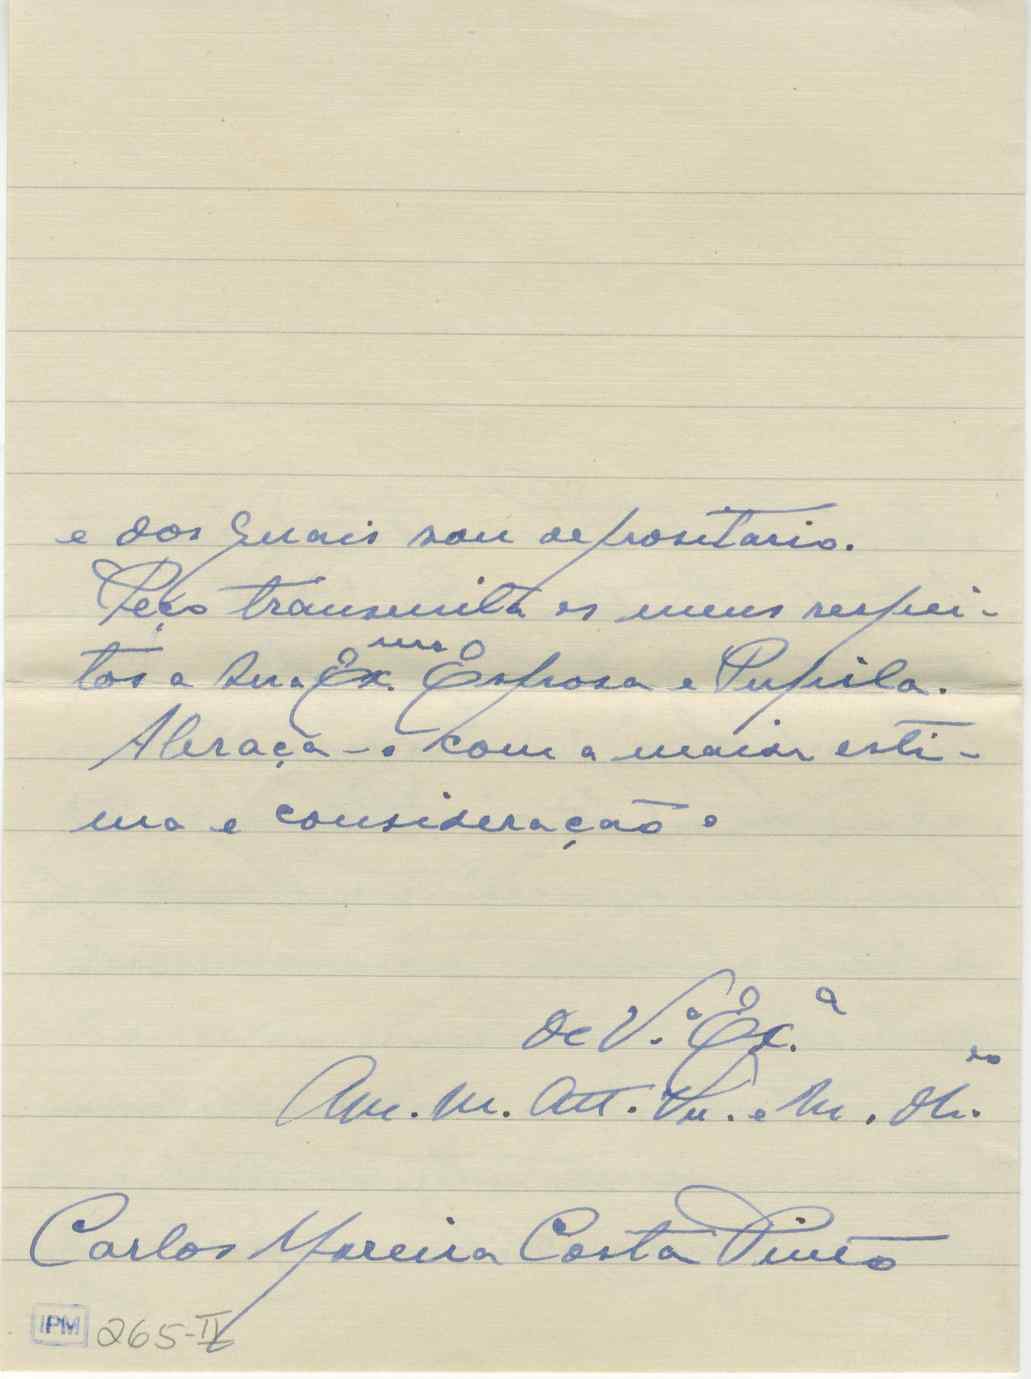 e dos quais sou depositario.
Peço transmita os meus respei-
tos a sua Ex.ma Esposa e Pupila.
Abraça-o com a maior esti-
ma e consideração.
De V.ª Ex.ª
Am. M. Att. Vn. e M. Ob.do
Carlos Moreira Costa Pinto
IPM 265-II